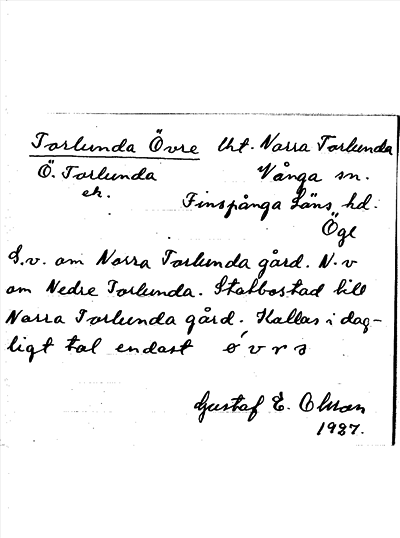 Torlunda Övre Uht. Norra Torlunda
Ö. Torlunda Vånga sn.
ek. Finspånga Läns hd.
Ögl
S.v. om Norra Torlunda gård. N.v
om Nedre Torlunda. Statbostad till
Norra Torlunda gård. Kallas i dag-
ligt tal endast
Gustaf E. Olsson
1927.